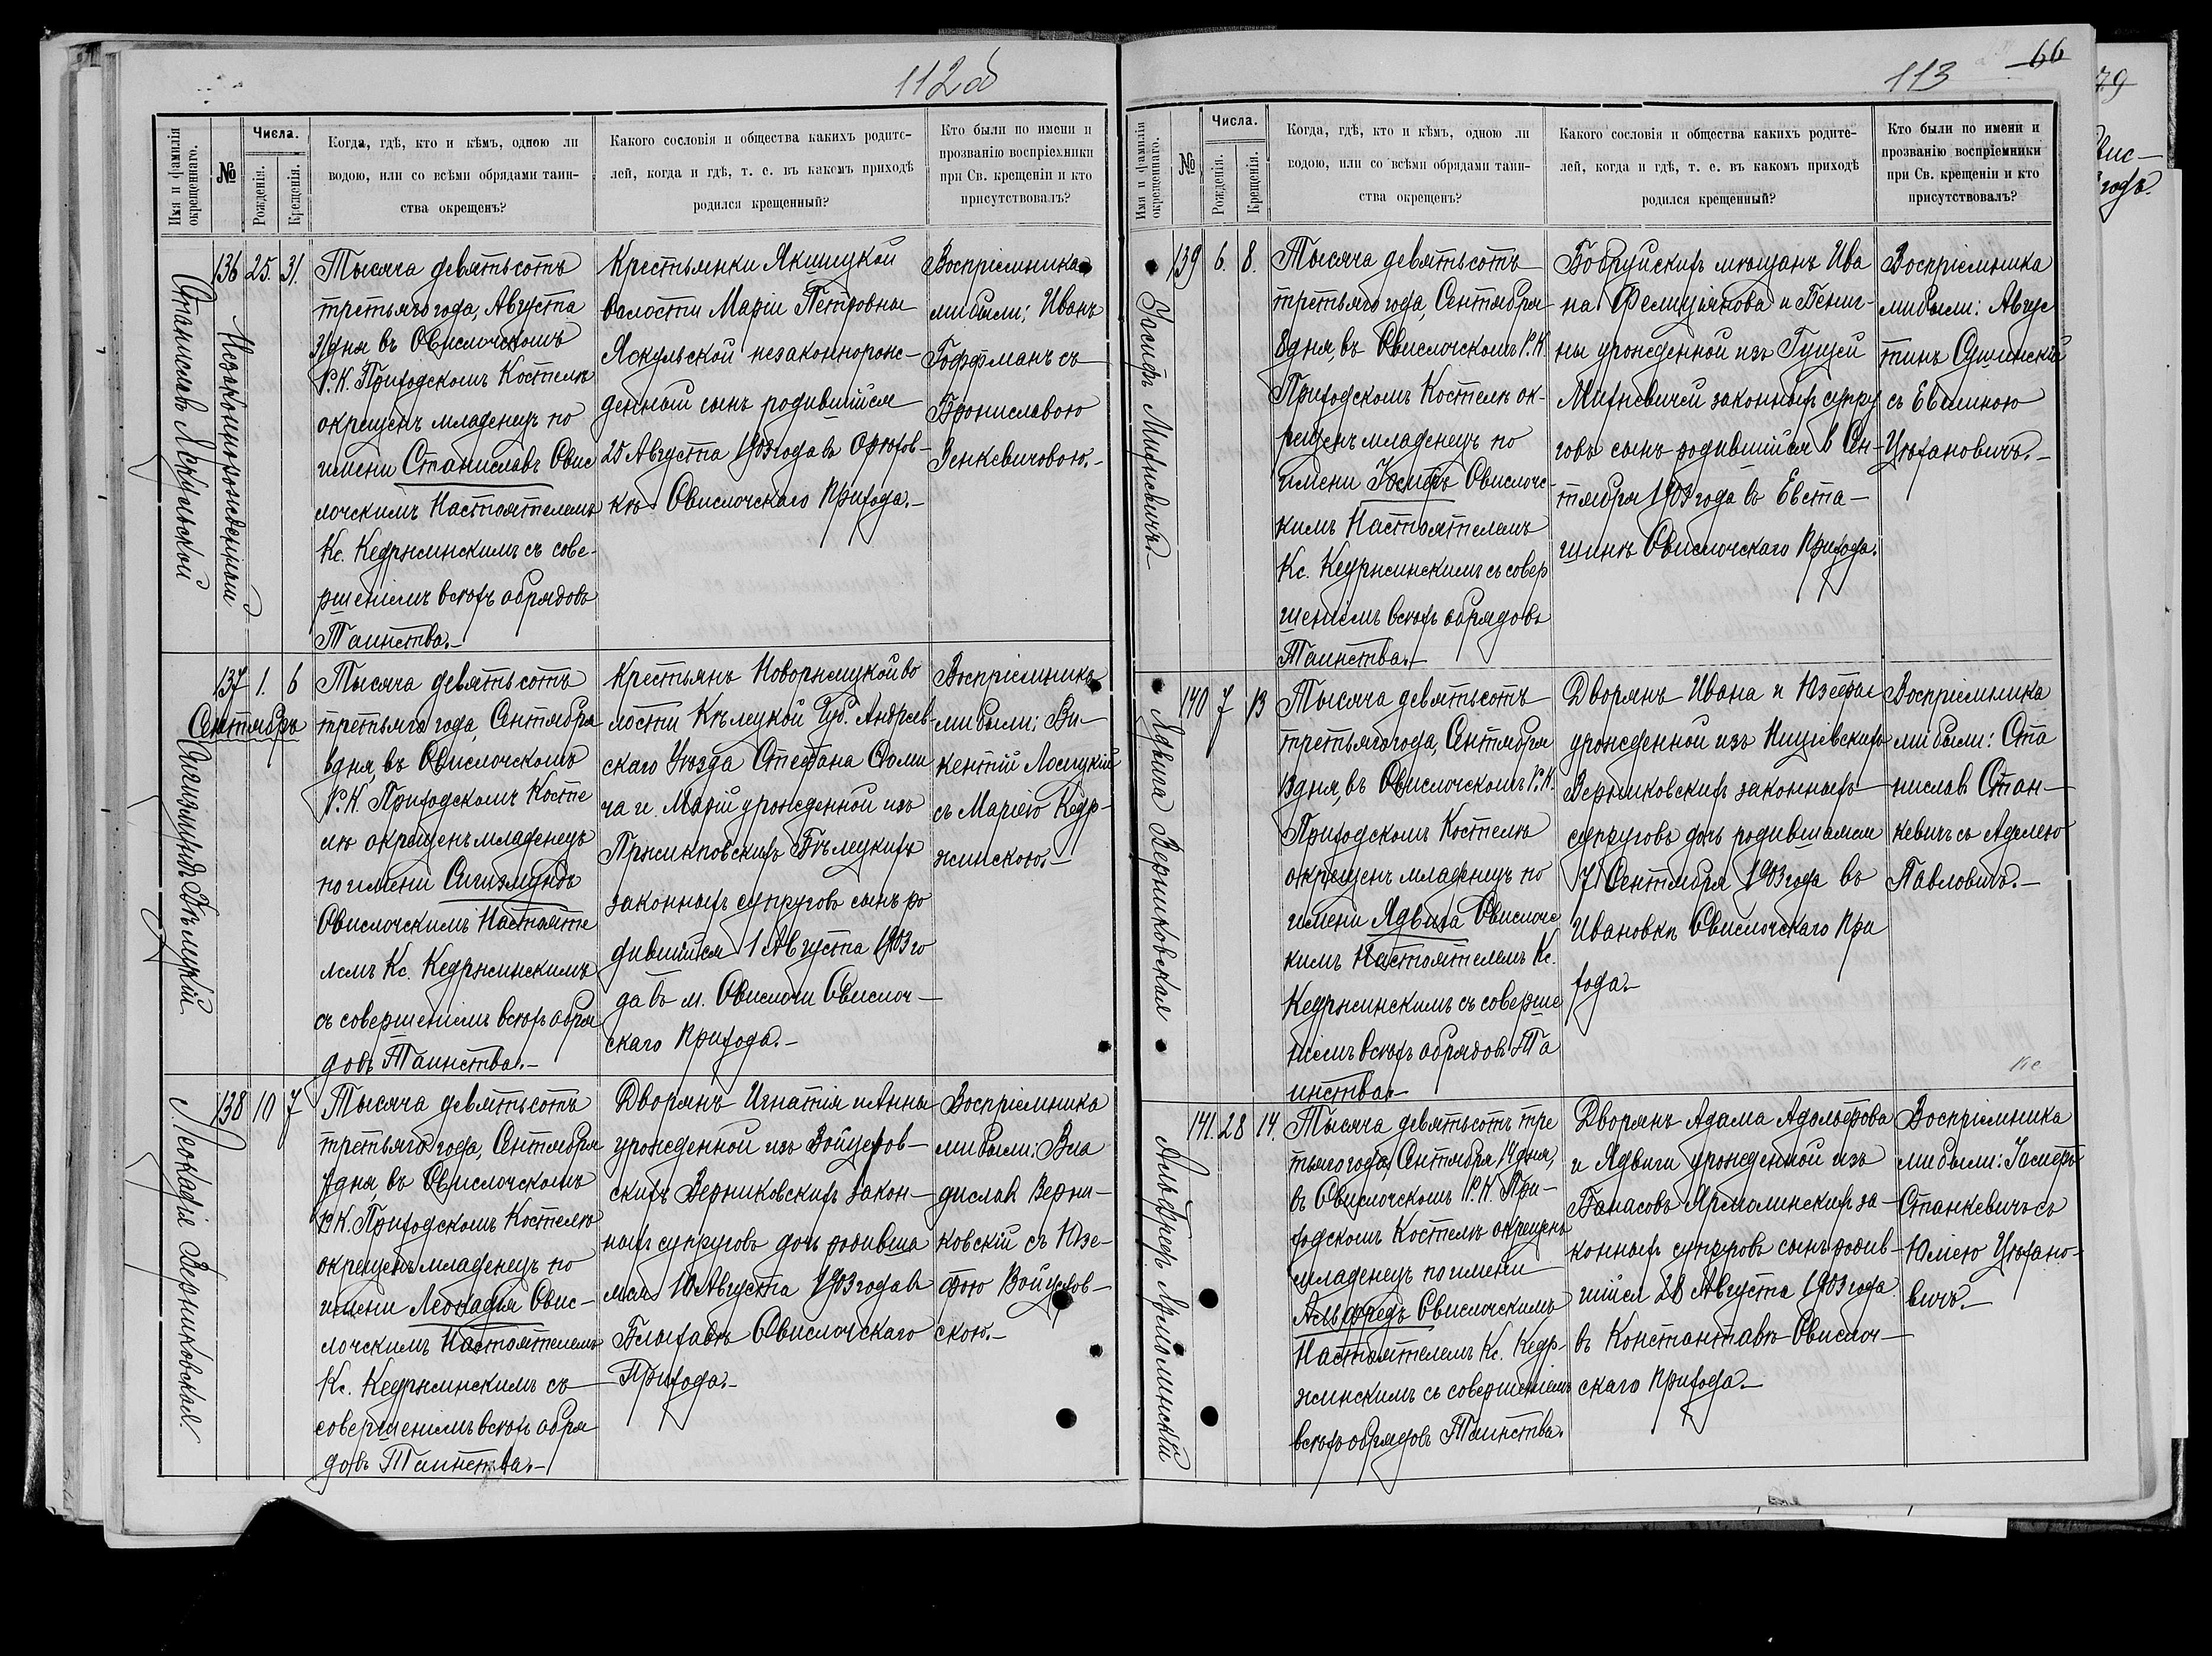 112 об
Имя и фамилія окрещеннаго.
№
Числа.
Рожденія.
Крещенія.
Когда, гдѣ, кто и кѣмъ, одною ли
водою, или со всѣми обрядами таин-
ства окрещенъ?
Какого сословія и общества какихъ родите-
лей, когда и гдѣ, т. е. въ какомъ приходѣ
родился крещенный?
Кто были по имени и
прозванію воспріемники
при Св. крещеніи и кто
присутствовалъ?
Станиславъ Яскульской
Незаконнорожденный
136
25.
31.
Тысяча девятьсотъ
третьяго года, Августа
31 дня въ Свислочскомъ
Р.К. Приходскомъ Костелѣ
окрещенъ младенецъ по
имени Станиславъ Свис
лочскимъ Настоятелемъ
Кс. Кедржинскимъ съ сове-
ршеніемъ всѣхъ обрядовъ
Таинства.-
Крестьянки Якшицкой
волости Маріи Петровны
Яскульской незаконнорож-
денный сынъ родившійся
25 Августа 1903 года въ
кѣ Свислочскаго Прихода.-
Воспріемника
ми были: Иванъ
Гоффманъ съ
Брониславою
Зенкевичовою.-
137
1.
6
Сентябрь
Сигизмундъ Бѣлецкій
Тысяча девятьсотъ
третьяго года, Сентября
6 дня, въ Свислочскомъ
Р.К. Приходскомъ Косте
лѣ окрещенъ младенецъ
по имени Сигизмундъ
Свислочскимъ Настояте
лемъ Кс. Кедржинскимъ
съ совершеніемъ всѣхъ обря
довъ Таинства.-
Крестьянъ во
лости Кѣлецкой Губ. Андреев-
скаго Уѣзда Стефана
ча и Маріи урожденной изъ
Бѣлецкихъ
законныхъ супруговъ сынъ ро
дившійся 1 Августа 1903 го
да въ м. Свислочи Свислоч-
скаго Прихода.-
Воспріемника
ми были: Ви-
кентій Лосицкій
съ Маріею Кедр-
жинскою.-
Леокадія Верниковская.
138
10
7
Тысяча девятьсотъ
третьяго года, Сентября
7 дня, въ Свислочскомъ
Р.К. Приходскомъ Костелѣ
окрещенъ младенецъ по
имени Леокадія Свис-
лочскимъ Настоятелемъ
Кс. Кедржинскимъ съ
совершеніемъ всѣхъ обря
довъ Таинства.-
Дворянъ Игнатія и Анны
урожденной изъ Войцехов-
скихъ Верниковскихъ закон-
ныхъ супруговъ дочь родивша
яся 10 Августа 1903 года въ
Свислочскаго
Прихода.-
Воспріемника
ми были: Вла
диславъ Верни-
ковскій съ Юзе-
фою Войцехов-
скою.-
113
66
Имя и фамилія окрещеннаго.
№
Числа.
Рожденія.
Крещенія.
Когда, гдѣ, кто и кѣмъ, одною ли
водою, или со всѣми обрядами таин-
ства окрещенъ?
Какого сословія и общества какихъ родите-
лей, когда и гдѣ, т. е. въ какомъ приходѣ
родился крещенный?
Кто были по имени и
прозванію воспріемники
при Св. крещеніи и кто
присутствовалъ?
Іосифъ Михневичъ.
139
6.
8.
Тысяча девятьсотъ
третьяго года, Сентября
8 дня, въ Свислочскомъ Р.К.
Приходскомъ Костелѣ ок-
рещенъ младенецъ по
имени Іосифъ Свислочс-
кимъ Настоятелемъ
Кс. Кедржинскимъ съ совер
шеніемъ всѣхъ обрядовъ
Таинства.-
Бобруйскихъ мѣщанъ Ива
на Фелиціянова и Бениг-
ны урожденной изъ
Михневичей законныхъ супру
говъ сынъ родившійся 6 Сен-
тября 1903 года въ Евста-
шинѣ Свислочскаго Прихода.
Воспріемника
ми были: Авгус
тинъ
съ Евелиною
Цѣхановичъ.-
Ядвига Верниковская
140
7
13
Тысяча девятьсотъ
третьяго года, Сентября
13 дня, въ Свислочскомъ Р.К.
Приходскомъ Костелѣ
окрещенъ младенецъ по
имени Ядвига Свислочс
кимъ Настоятелемъ Кс.
Кедржинскимъ съ соверше
ніемъ всѣхъ обрядовъ Та
инства.-
Дворянъ Ивана и Юзефы
урожденной изъ Ниціевскихъ
Верниковскихъ законныхъ
супруговъ дочь родившаяся
7 Сентября 1903 года въ
Ивановкѣ Свислочскаго При
хода.-
Воспріемника
ми были: Ста
ниславъ Стан-
кевичъ съ Аделею
Павловичъ.-
Альфредъ Ярмолинскій
141.
28
14.
Тысяча девятьсотъ тре
тьяго года, Сентября 14 дня,
въ Свислочскомъ Р.К. При-
ходскомъ Костелѣ окрещенъ
младенецъ по имени
Альфредъ Свислочскимъ
Настоятелемъ Кс. Кедр-
жинскимъ съ совершеніемъ
всѣхъ обрядовъ Таинства.
Дворянъ Адама Адольфова
и Ядвиги урожденной изъ
Банасовъ Ярмолинскихъ за-
конныхъ супруговъ сынъ родив-
шійся 28 Августа 1903 года
въ Константовѣ Свислоч-
скаго Прихода.-
Воспріемника
ми были: Іосифъ
Станкевичъ съ
Юліею Цѣхано-
вичъ.-
79
Свис-
годъ.